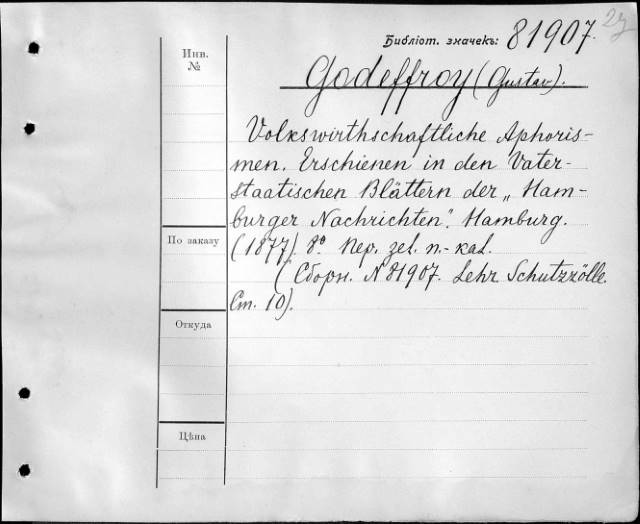 Библіот. значекъ: 81907.
Инв.
№
Godeffroy (Gustav).
Volkswirthschaftliche Aphoris-
men. Erschienen in den Vater-
staatischen Blättern der „Ham-
burger Nachrichten". Hamburg.
По заказу
(1877). 8°. Пер. zel. п.-каl.
(Сборн. N 81907. Lehr Schutzzölle.
Ст. 10).
Откуда
Цѣна